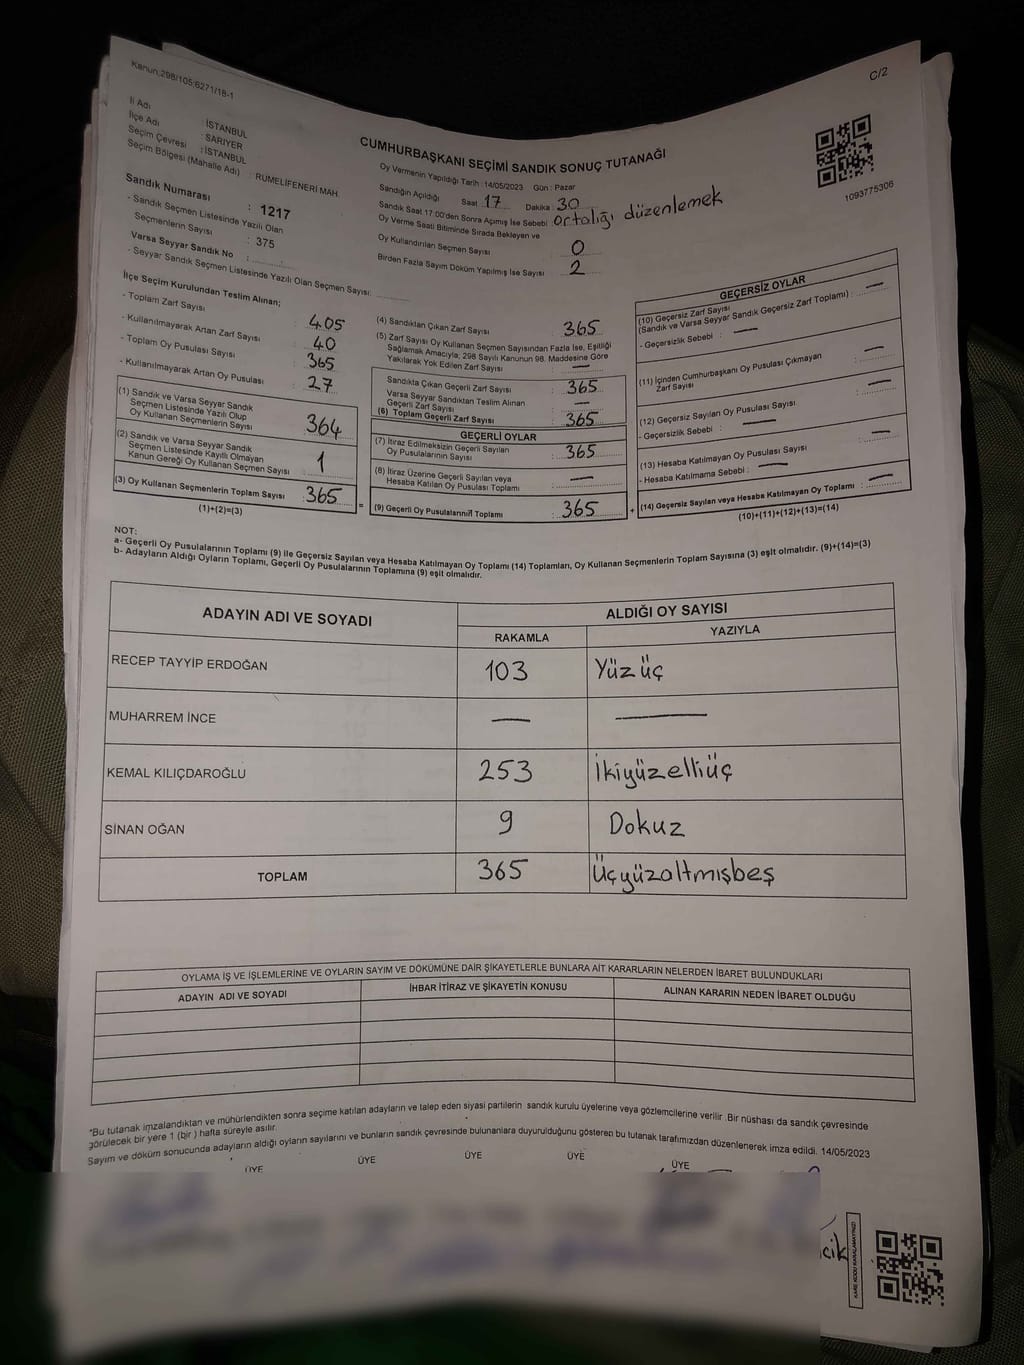 Kanun,298/105;6271/18-1
C/2
İl Adı : İSTANBUL
İlçe Adı : SARIYER
Seçim Çevresi : İSTANBUL
Seçim Bölgesi (Mahalle Adı) : RUMELİFENERİ MAH.
CUMHURBAŞKANI SEÇİMİ SANDIK SONUÇ TUTANAĞI
Oy Vermenin Yapıldığı Tarih : 14/05/2023 Gün : Pazar
1093775306
Sandık Numarası : 1217
- Sandık Seçmen Listesinde Yazılı Olan
Seçmenlerin Sayısı : 375
Varsa Seyyar Sandık No :
- Seyyar Sandık Seçmen Listesinde Yazılı Olan Seçmen Sayısı:
Sandığın Açıldığı Saat 17 Dakika : 30
Sandık Saat 17:00'den Sonra Açmış İse Sebebi : Ortalığı düzenlemek
Oy Verme Saati Bitiminde Sırada Bekleyen ve
Oy Kullandırılan Seçmen Sayısı : 0
Birden Fazla Sayım Döküm Yapılmış İse Sayısı : 2
İlçe Seçim Kurulundan Teslim Alınan;
- Toplam Zarf Sayısı : 405
- Kullanılmayarak Artan Zarf Sayısı : 40
- Toplam Oy Pusulası Sayısı : 365
- Kullanılmayarak Artan Oy Pusulası : 27
(1) Sandık ve Varsa Seyyar Sandık
Seçmen Listesinde Yazılı Olup
Oy Kullanan Seçmenlerin Sayısı : 364
(2) Sandık ve Varsa Seyyar Sandık
Seçmen Listesinde Kayıtlı Olmayan
Kanun Gereği Oy Kullanan Seçmen Sayısı : 1
(3) Oy Kullanan Seçmenlerin Toplam Sayısı : 365 =
(1)+(2)=(3)
(4) Sandıktan Çıkan Zarf Sayısı : 365
(5) Zarf Sayısı Oy Kullanan Seçmen Sayısından Fazla İse, Eşitliği
Sağlamak Amacıyla, 298 Sayılı Kanunun 98. Maddesine Göre
Yakılarak Yok Edilen Zarf Sayısı : —
Sandıkta Çıkan Geçerli Zarf Sayısı : 365
Varsa Seyyar Sandıktan Teslim Alınan
Geçerli Zarf Sayısı : —
(6) Toplam Geçerli Zarf Sayısı : 365
GEÇERLİ OYLAR
(7) İtiraz Edilmeksizin Geçerli Sayılan
Oy Pusulalarının Sayısı : 365
(8) İtiraz Üzerine Geçerli Sayılan veya
Hesaba Katılan Oy Pusulası Toplamı : —
(9) Geçerli Oy Pusulalarının Toplamı : 365 +
GEÇERSİZ OYLAR
(10) Geçersiz Zarf Sayısı
(Sandık ve Varsa Seyyar Sandık Geçersiz Zarf Toplamı) : —
- Geçersizlik Sebebi : —
(11) İçinden Cumhurbaşkanı Oy Pusulası Çıkmayan
Zarf Sayısı : —
(12) Geçersiz Sayılan Oy Pusulası Sayısı : —
- Geçersizlik Sebebi : —
(13) Hesaba Katılmayan Oy Pusulası Sayısı : —
- Hesaba Katılmama Sebebi : —
(14) Geçersiz Sayılan veya Hesaba Katılmayan Oy Toplamı : —
(10)+(11)+(12)+(13)=(14)
NOT:
a- Geçerli Oy Pusulalarının Toplamı (9) ile Geçersiz Sayılan veya Hesaba Katılmayan Oy Toplamı (14) Toplamları, Oy Kullanan Seçmenlerin Toplam Sayısına (3) eşit olmalıdır. (9)+(14)=(3)
b- Adayların Aldığı Oyların Toplamı, Geçerli Oy Pusulalarının Toplamına (9) eşit olmalıdır.
ADAYIN ADI VE SOYADI
ALDIĞI OY SAYISI
RAKAMLA YAZIYLA
RECEP TAYYİP ERDOĞAN 103 Yüzüç
MUHARREM İNCE — —
KEMAL KILIÇDAROĞLU 253 İkiyüzelliüç
SİNAN OĞAN 9 Dokuz
TOPLAM 365 Üçyüzaltmışbeş
OYLAMA İŞ VE İŞLEMLERİNE VE OYLARIN SAYIM VE DÖKÜMÜNE DAİR ŞİKAYETLERLE BUNLARA AİT KARARLARIN NELERDEN İBARET BULUNDUKLARI
ADAYIN ADI VE SOYADI İHBAR İTİRAZ VE ŞİKAYETİN KONUSU ALINAN KARARIN NEDEN İBARET OLDUĞU
*Bu tutanak imzalandıktan ve mühürlendikten sonra seçime katılan adayların ve talep eden siyasi partilerin sandık kurulu üyelerine veya gözlemcilerine verilir .Bir nüshası da sandık çevresinde
görülecek bir yere 1 (bir ) hafta süreyle asılır.
Sayım ve döküm sonucunda adayların aldığı oyların sayılarını ve bunların sandık çevresinde bulunanlara duyurulduğunu gösteren bu tutanak tarafımızdan düzenlenerek imza edildi. 14/05/2023
ÜYE ÜYE ÜYE ÜYE ÜYE